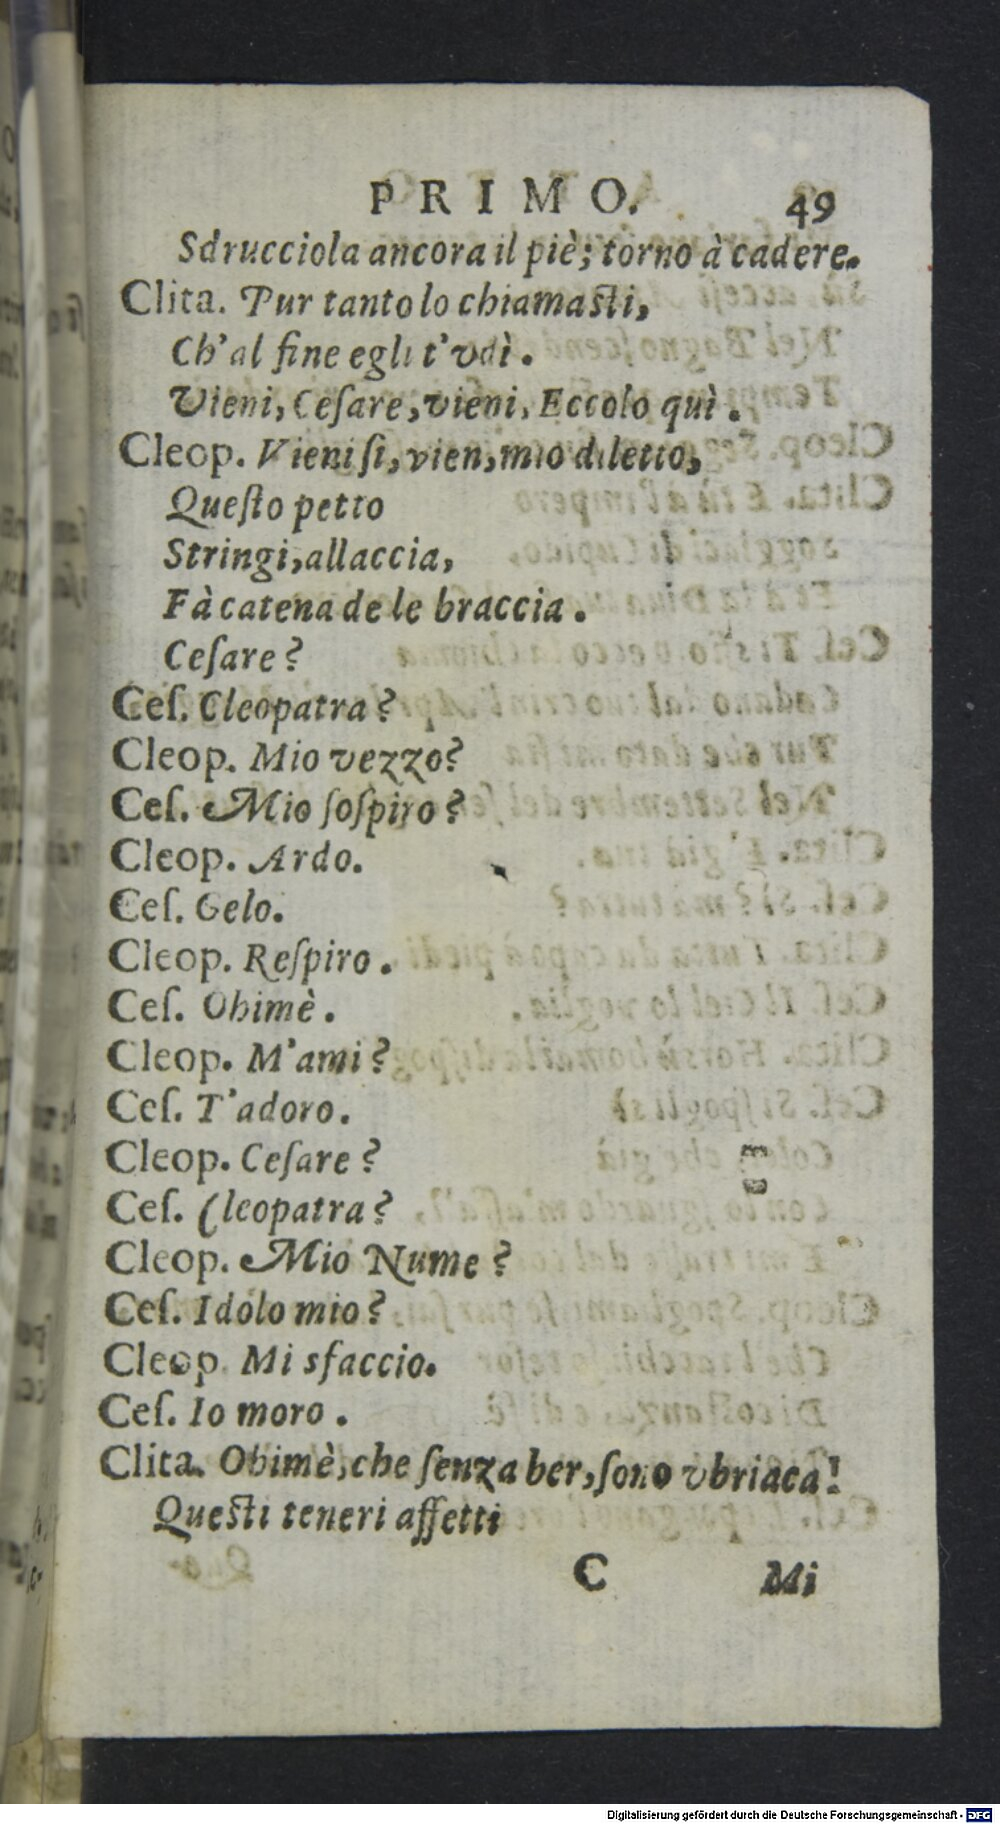 PRIMO. 49
Sdrucciola ancora il piè; torno à cadere.
Clita. Pur tanto lo chiamasti,
Ch'al fine egli t'vdì.
Vieni, Ceſare, vieni, Eccolo quì.
Cleop. Vieni ſi, vien, mio diletto,
Queſto petto
Stringi, allaccia,
Fà catena de le braccia.
Ceſare?
Ceſ. Cleopatra?
Cleop. Mio vezzo?
Ceſ. Mio ſoſpiro?
Cleop. Ardo.
Ceſ. Gelo.
Cleop. Reſpiro.
Ceſ. Ohimè.
Cleop. M'ami?
Ceſ. T'adoro.
Cleop. Ceſare?
Ceſ. Cleopatra?
Cleop. Mio Nume?
Ceſ. Idolo mio?
Cleop. Mi sfaccio.
Ceſ. Io moro.
Clita. Ohimè, che ſenza ber, ſono vbriaca!
Questi teneri affetti
C Mi
Digitalisierung gefördert durch die Deutsche Forschungsgemeinschaft - DFG